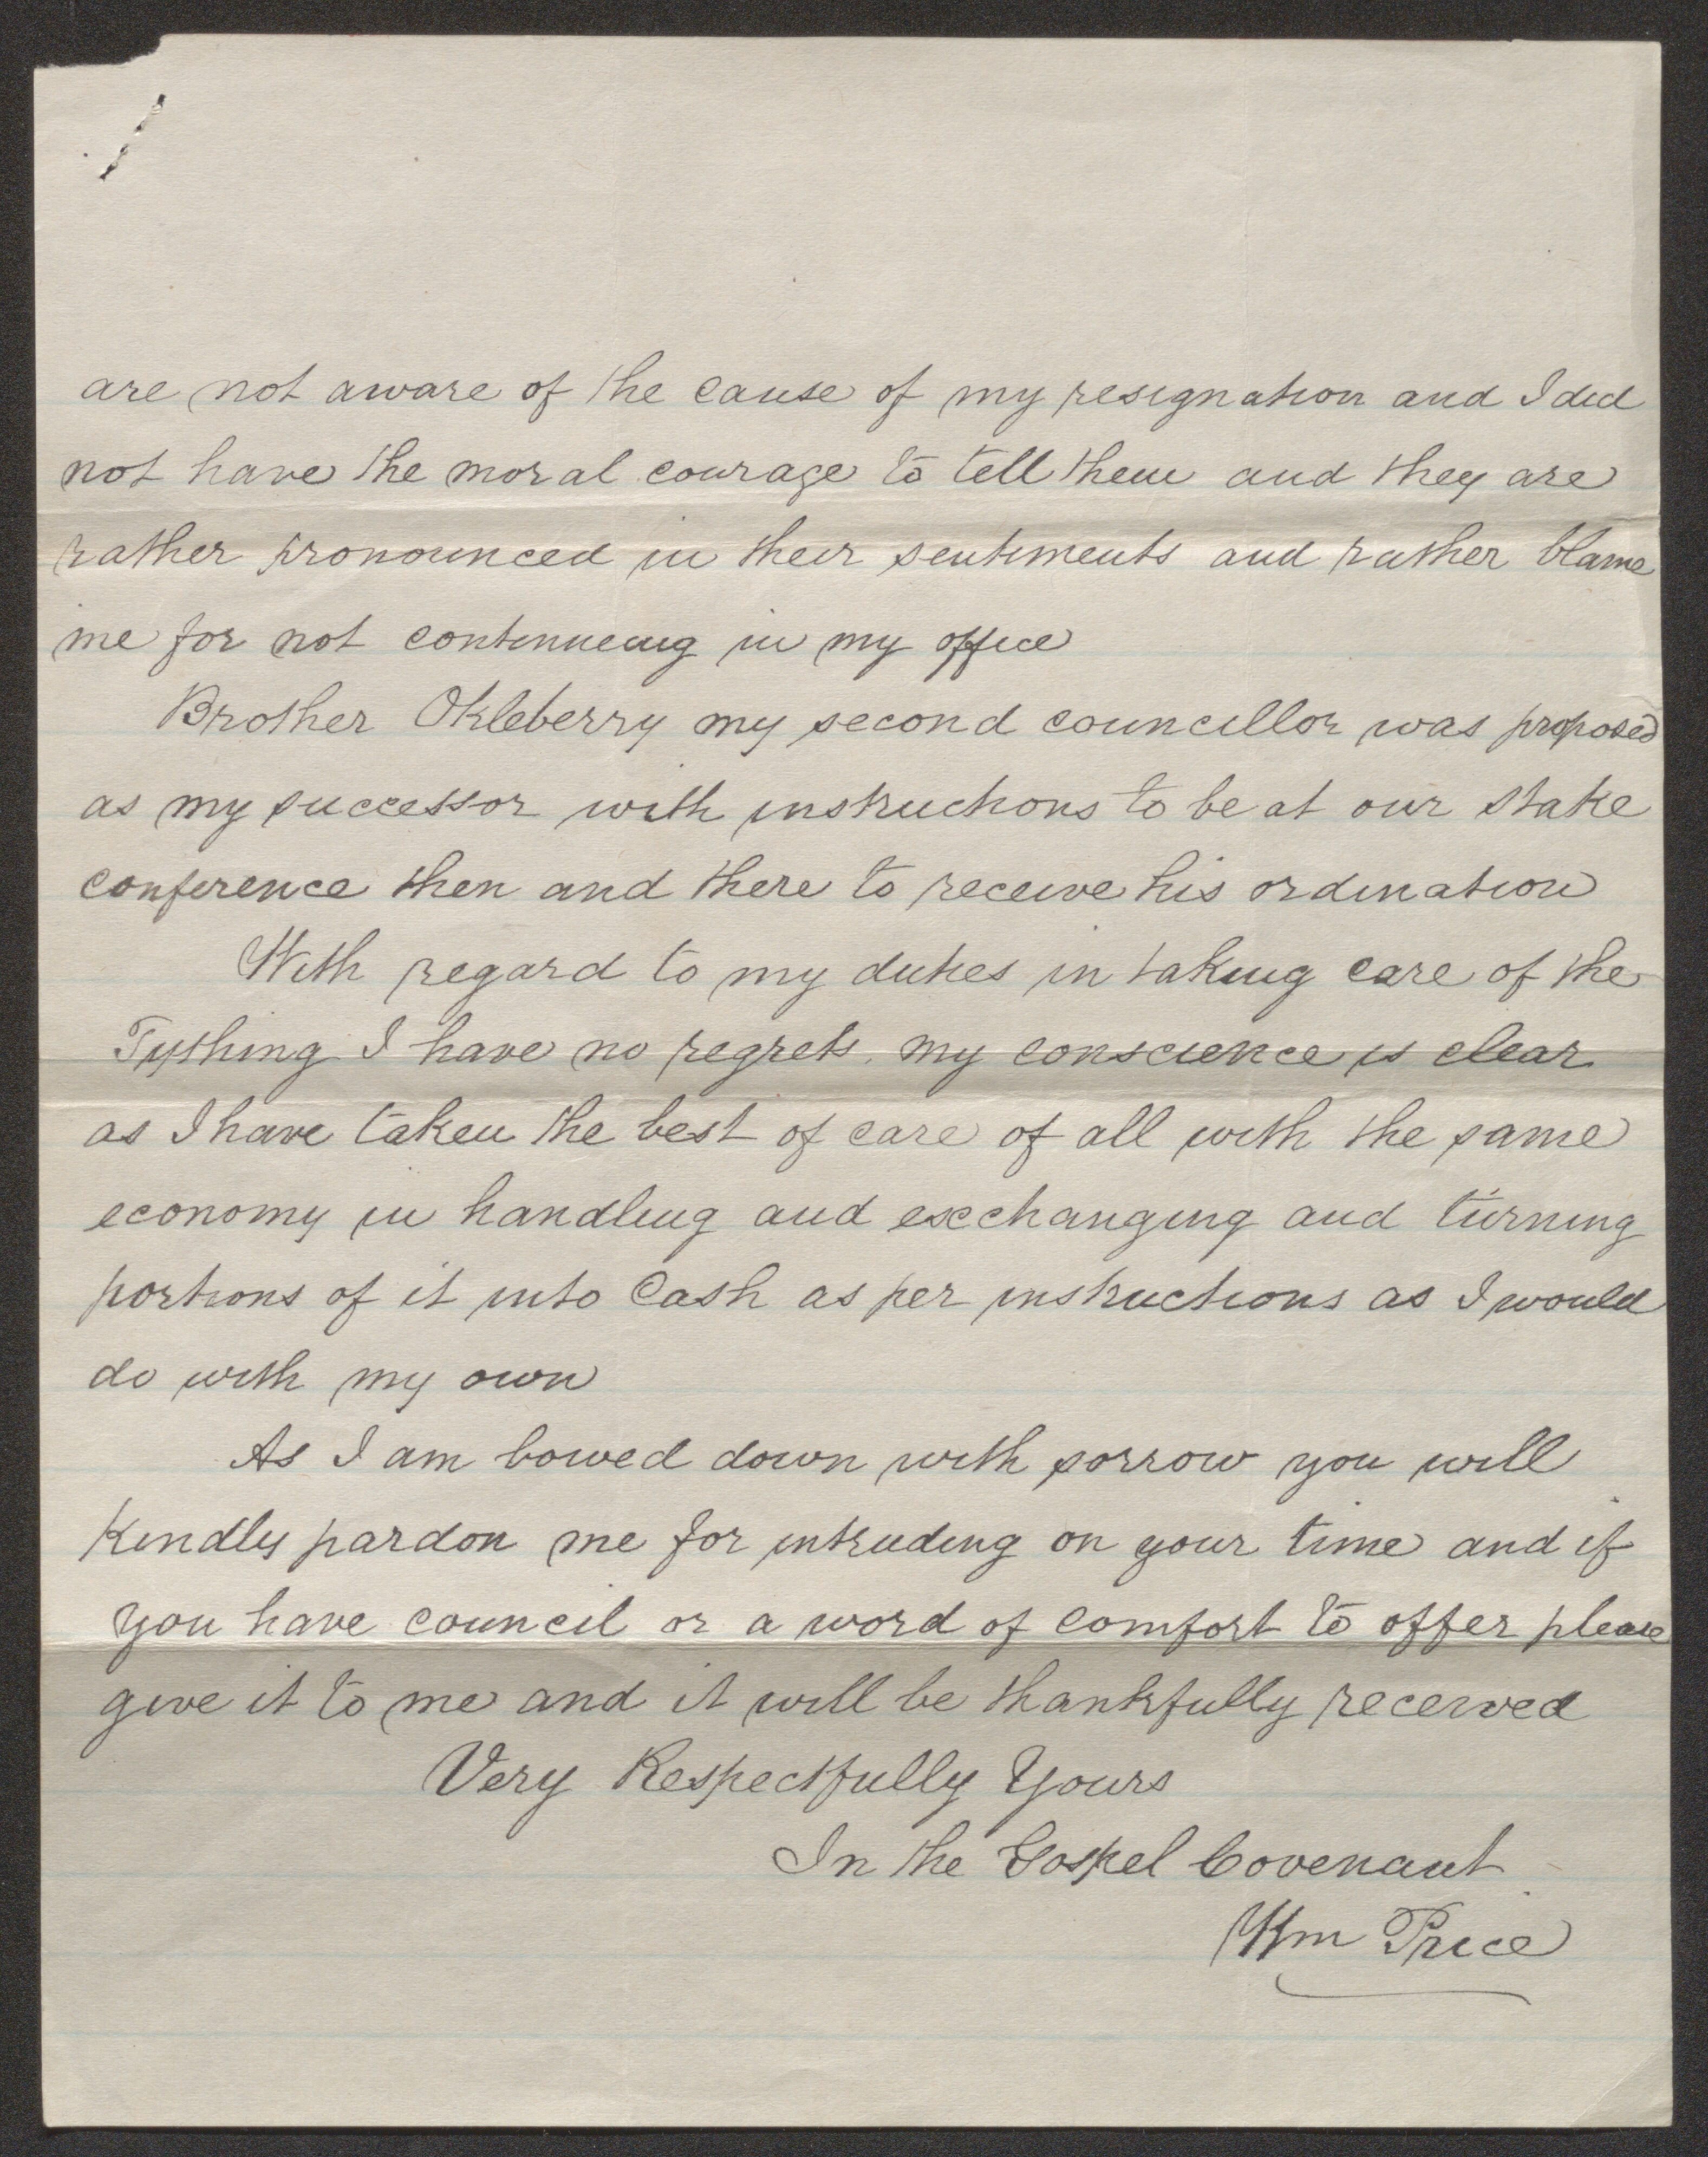 are not aware of the cause of my resignation and I did
not have the moral courage to tell them and they are
rather pronounced in their sentiments and rather blame
me for not continueing in my office
Brother Okleberry my second councillor was proposed
as my successor with instructions to be at our Stake
conference then and there to receive his ordination
With regard to my duties in taking care of the
Tythimg I have no regrets. my conscience is clear
as I have taken the best of care of all with the same
economy in handling and exchanging and turning
portions of it into Cash as per instructions as I would
do with my own
As I am bowed down with sorrow you will
Kindly pardon me for intruding on your time and if
you have council or a word of comfort to offer please
give it to me and it will be thankfully received
Very Respectfully Yours
In the Gospel Covenant
Wm Price